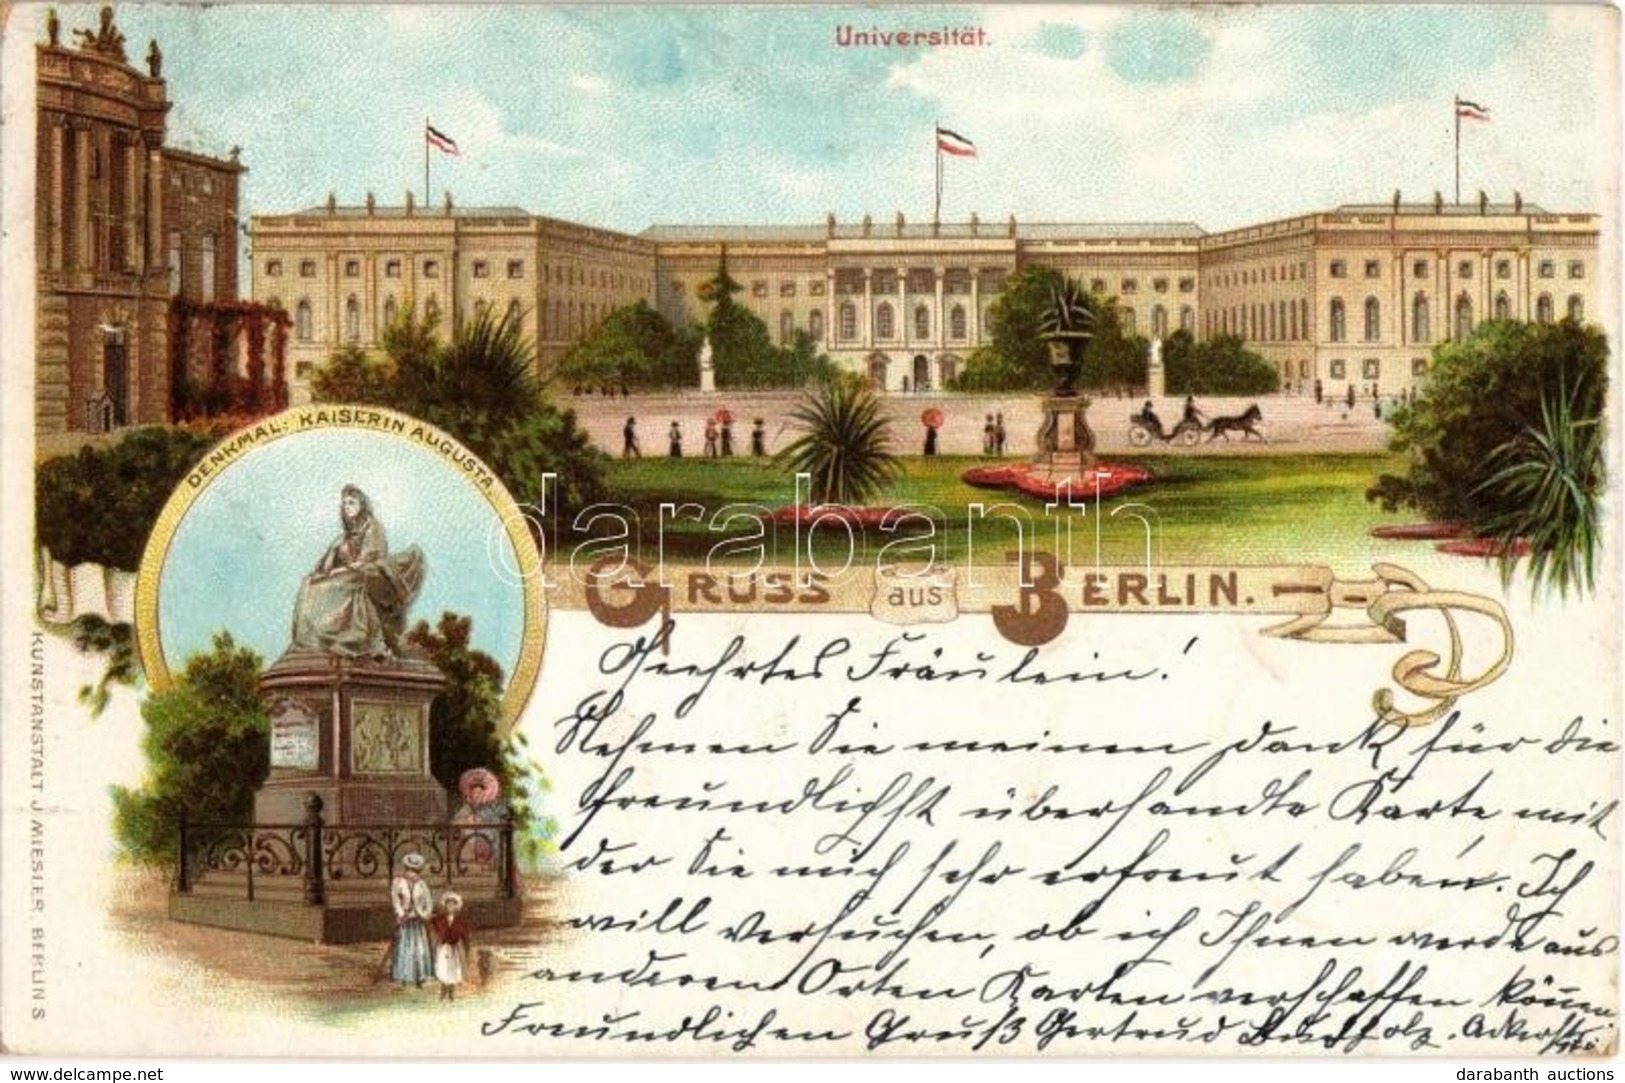 Universität.
DENKMAL: KAISERIN AUGUSTA.
GRUSS aus BERLIN.
KUNSTANSTALT J. MIESLER BERLIN S
Geehrtes Fräulein!
Nehmen Sie meinen Dank für die
freundlichst übersandte Karte mit
der Sie mich sehr erfreut haben. Ich
will versuchen, ob ich Ihnen werde aus
anderen Orten Karten verschaffen können
Freundlichen Gruß Gertrud Ackerstr.
darabanth
www.delcampe.net
darabanth auctions